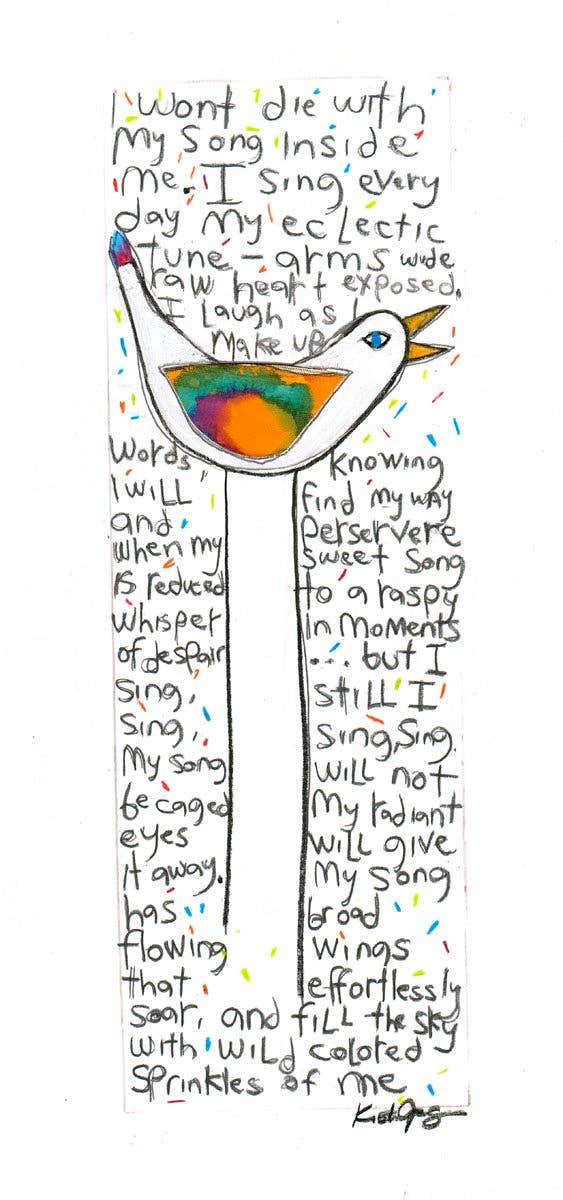 I wont die with
My song inside
Me. I sing every
day my eclectic
tune - arms wide
raw heart exposed.
I laugh as I
Make up
Words Knowing
I Will find my way
and perservere
when my sweet song
is reduced to a raspy
whisper in moments
of despair ... but I
sing, still I
sing, sing, sing.
My song will not
be caged My radiant
eyes will give
it away. My song
has broad
flowing wings
that effortlessly
soar, and fill the sky
with wild colored
sprinkles of me